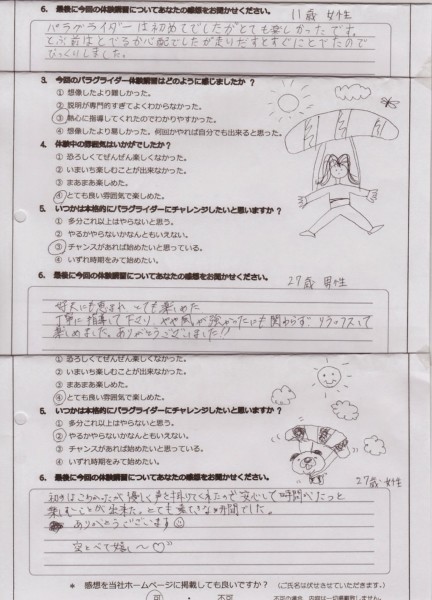 6. 最後に今回の体験講習についてあなたの感想をお聞かせください。
11歳 女性
パラグライダーは初めてでしたがとても楽しかったです。
とぶ前はとべるか心配でしたが走りだすとすぐにとべたので
びっくりしました。
3. 今回のパラグライダー体験講習はどのように感じましたか？
① 想像したより難しかった。
② 説明が専門的すぎてよくわからなかった。
③ 熱心に指導してくれたのでわかりやすかった。
④ 想像したより易しかった。何回かやれば自分でも出来ると思った。
4. 体験中の雰囲気はいかがでしたか？
① 恐ろしくてぜんぜん楽しくなかった。
② いまいち楽しむことが出来なかった。
③ まあまあ楽しめた。
④ とても良い雰囲気で楽しめた。
5. いつかは本格的にパラグライダーにチャレンジしたいと思いますか？
① 多分これ以上はやらないと思う。
② やるかやらないかなんともいえない。
③ チャンスがあれば始めたいと思っている。
④ いずれ時期をみて始めたい。
6. 最後に今回の体験講習についてあなたの感想をお聞かせください。
27歳 男性
好天にも恵まれ とても楽しめた
丁寧に指導して下さり やや風が強かったにも関わらず リラックスして
楽しめました。ありがとうございました!!
① 恐ろしくてぜんぜん楽しくなかった。
② いまいち楽しむことが出来なかった。
③ まあまあ楽しめた。
④ とても良い雰囲気で楽しめた。
5. いつかは本格的にパラグライダーにチャレンジしたいと思いますか？
① 多分これ以上はやらないと思う。
② やるかやらないかなんともいえない。
③ チャンスがあれば始めたいと思っている。
④ いずれ時期をみて始めたい。
6. 最後に今回の体験講習についてあなたの感想をお聞かせください。
27歳・女性
初めはこわかったが優しく声を掛けてくれたので安心して時間べたっと
楽しむことが出来た。とても素敵な時間でした。
ありがとうございます
空とべて嬉し〜♡
* 感想を当社ホームページに掲載しても良いですか？ (ご氏名は伏せさせていただきます。)
可 ・ 不可
不可の場合、内容は一切掲載致しません。